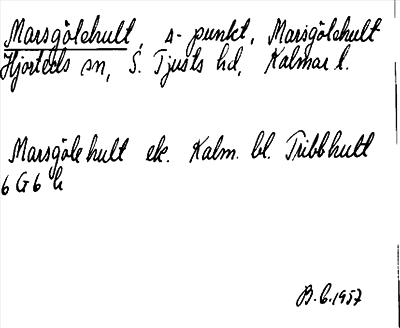 Marsgölehult, s-punkt, Marsgölehult
Hjorteds sn, S. Tjusts hd, Kalmar l.
Marsgölehult ek. Kalm. bl. Tribbhult
6 G 6 h
B.C. 1957